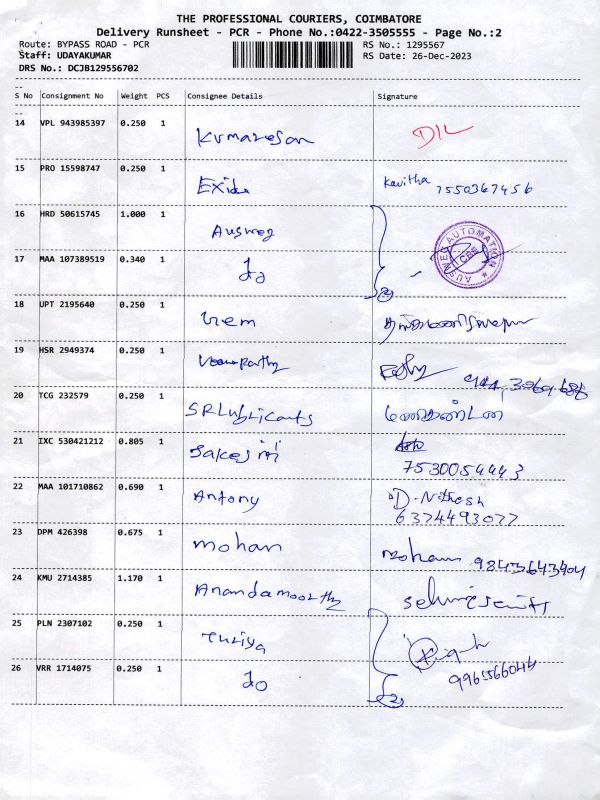 THE PROFESSIONAL COURIERS, COIMBATORE
Delivery Runsheet - PCR - Phone No.:0422-3505555 - Page No.:2
Route: BYPASS ROAD - PCR RS No.: 1295567
Staff: UDAYAKUMAR RS Date: 26-Dec-2023
DRS No.: DCJB129556702
S No Consignment No Weight PCS Consignee Details Signature
14 VPL 943985397 0.250 1 Kumaresan DIL
15 PRO 15598747 0.250 1 Exide Kavitha 7550367456
16 HRD 50615745 1.000 1 Ausweg
AUSWEG AUTOMATION
CBE
17 MAA 107389519 0.340 1 do
18 UPT 2195640 0.250 1
19 HSR 2949374 0.250 1
20 TCG 232579 0.250 1 SRLubricants
21 IXC 530421212 0.805 1
7530054443
22 MAA 101710862 0.690 1 Antony
6374493077
23 DPM 426398 0.675 1 mohan mohan 9843643404
24 KMU 2714385 1.170 1 Anandamoorthy
25 PLN 2307102 0.250 1 Turiya
26 VRR 1714075 0.250 1 do